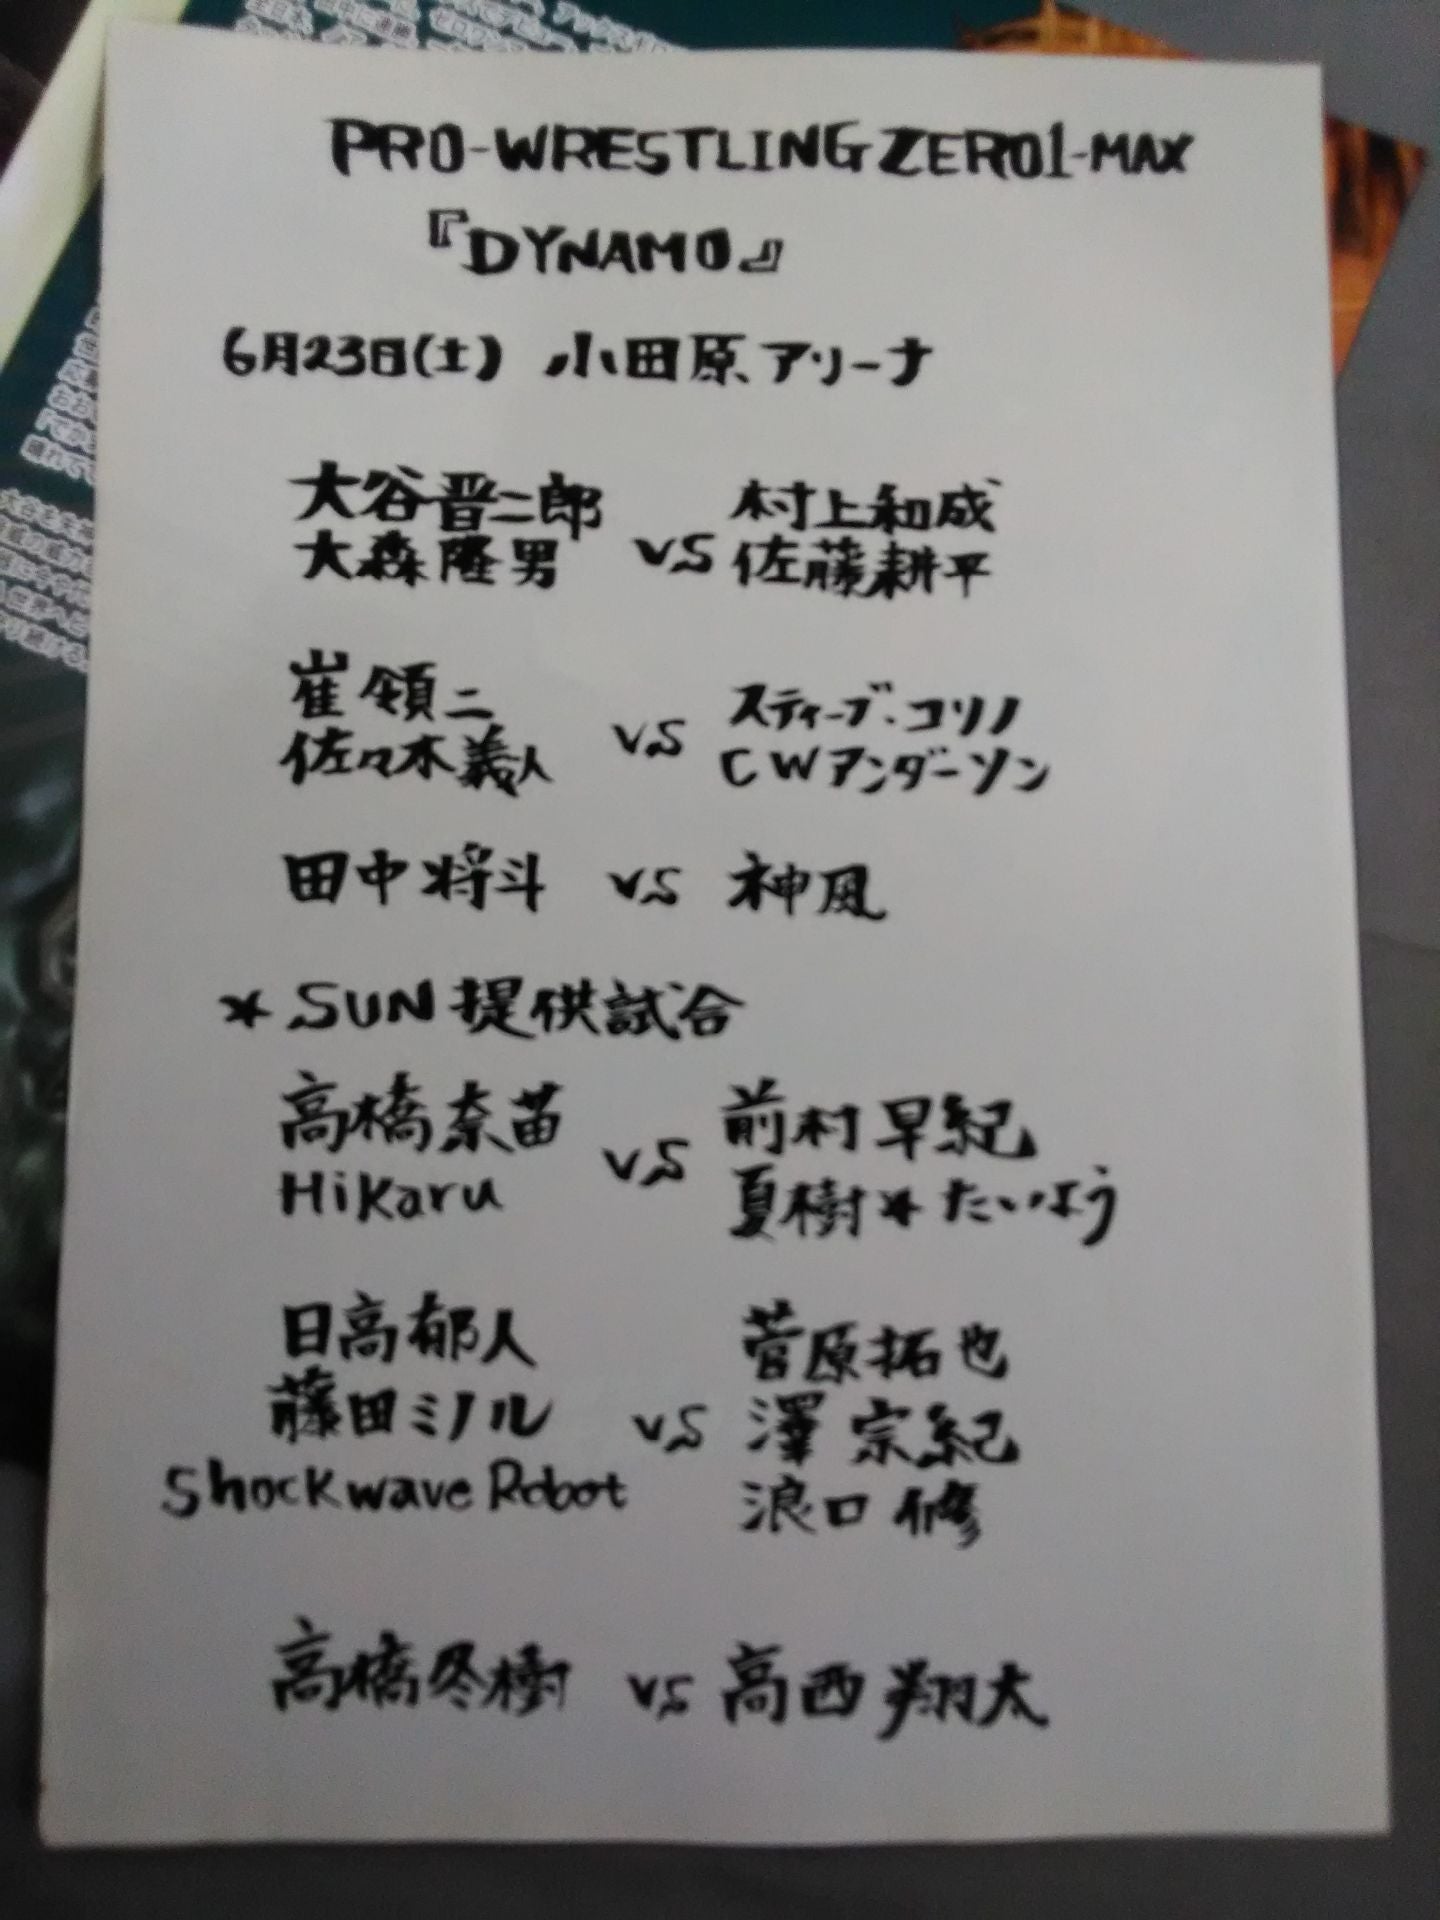 PRO-WRESTLING ZERO1-MAX
『DYNAMO』
6月23日(土) 小田原アリーナ
大谷晋二郎 村上和成
大森隆男 vs 佐藤耕平
崔領二 vs スティーブ・コリノ
佐々木義人 CWアンダーソン
田中将斗 vs 神風
*SUN提供試合
高橋奈苗 vs 前村早紀
Hikaru 夏樹*たいよう
日高郁人 菅原拓也
藤田ミノル vs 澤宗紀
Shockwave Robot 浪口修
高橋冬樹 vs 高西翔太